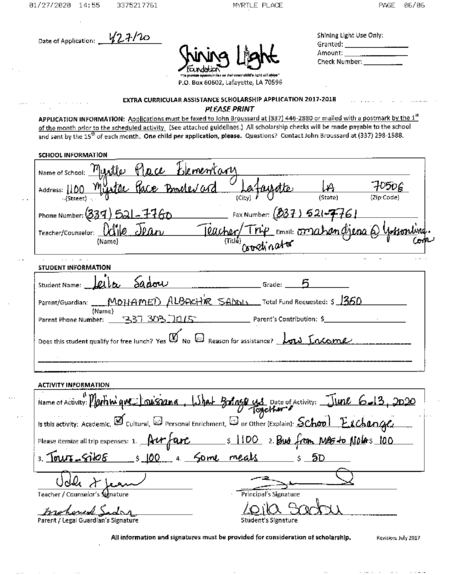 01/27/2020 14:55 3375217761 MYRTLE PLACE PAGE 06/06
Date of Application: 1/27/20
Shining Light
Foundation
P.O. Box 60602, Lafayette, LA 70596
Shining Light Use Only:
Granted:
Amount:
Check Number:
EXTRA CURRICULAR ASSISTANCE SCHOLARSHIP APPLICATION 2017-2018
PLEASE PRINT
APPLICATION INFORMATION: Applications must be faxed to John Broussard at (337) 446-2880 or mailed with a postmark by the 1st
of the month prior to the scheduled activity. (See attached guidelines.) All scholarship checks will be made payable to the school
and sent by the 15th of each month. One child per application, please. Questions? Contact John Broussard at (337) 298-1588.
SCHOOL INFORMATION
Name of School: Myrtle Place Elementary
Address: 1100 Myrtle Place Boulevard Lafayette LA 70506
(Street) (City) (State) (Zip Code)
Phone Number: (337) 521-7760 Fax Number: (337) 521-7761
Teacher/Counselor: Odile Jean Teacher/Trip Coordinator Email:
(Name) (Title)
STUDENT INFORMATION
Student Name: Leila Sadou Grade: 5
Parent/Guardian: MOHAMED ALBACHIR SADOU Total Fund Requested: $ 1350
(Name)
Parent Phone Number: 337 303 7015 Parent's Contribution: $
Does this student qualify for free lunch? Yes No Reason for assistance? Low Income
ACTIVITY INFORMATION
Name of Activity: Martinique-Louisiana, What Brings us Together Date of Activity: June 6-13, 2020
Is this activity: Academic, Cultural, Personal Enrichment, or Other (Explain): School Exchange
Please itemize all trip expenses: 1. Airfare $ 1100 2. Bus from to $ 100
3. Tours-Sites $ 100 4. Some meals $ 50
Teacher / Counselor's Signature Principal's Signature
Mohamed Sadou Leila Sadou
Parent / Legal Guardian's Signature Student's Signature
All information and signatures must be provided for consideration of scholarship. Revision: July 2017